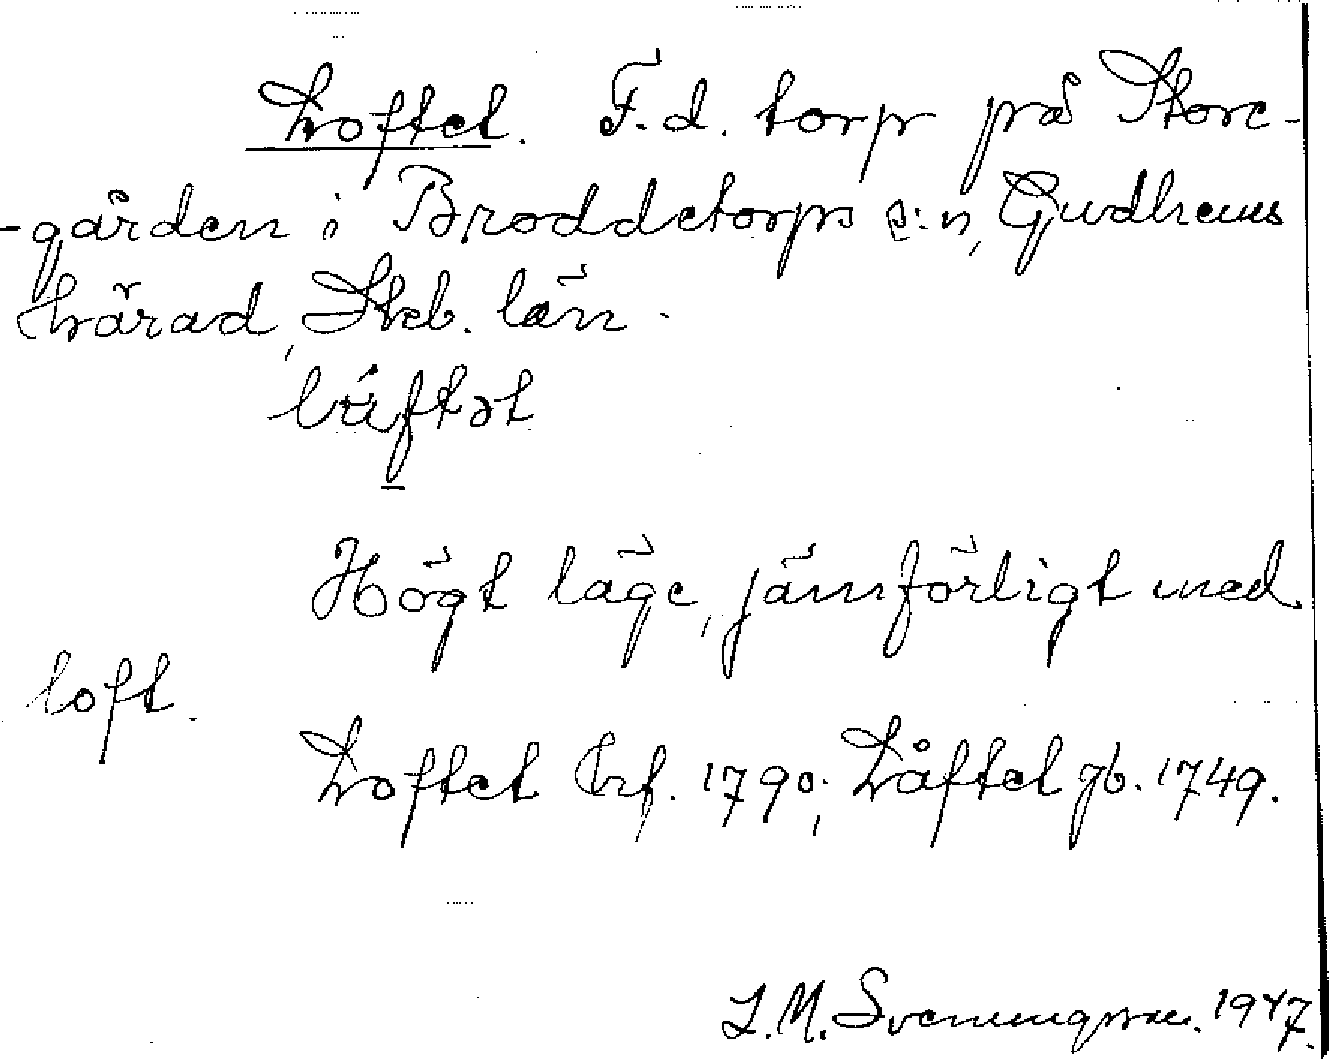 Loftet. F.d. torp på Store-
-gården i Broddetorps s:n, Gudhems
härad, Skb. län.
Högt läge, jämförligt med
loft.
Loftet Erf. 1790; Låftet gb. 1749.
L.M. Svenungsson. 1947.